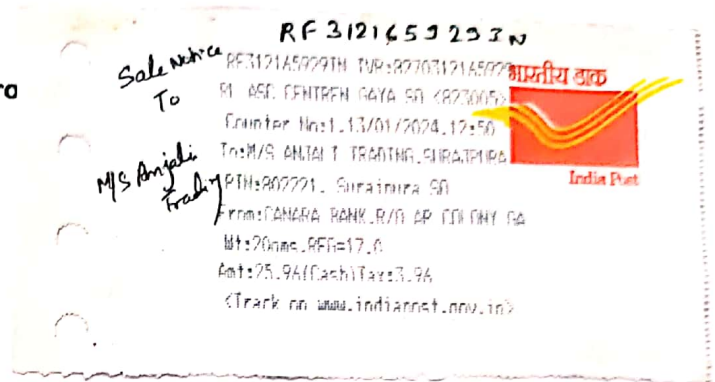 RF312165929IN
Sale Notice
To
M/S Anjali
Trading
RF312165929IN IVR:8270312165929
RL ASC CENTREN GAYA SO <823005>
Counter No:1,13/01/2024,12:50
To:M/S ANJALI TRADING,SURAJPURA
PIN:802221, Surajpura SO
From:CANARA BANK,R/O AP COLONY GA
Wt:20gms,REG=17.0
Amt:25.96(Cash)Tax:3.96
<Track on www.indiapost.gov.in>
भारतीय डाक
India Post